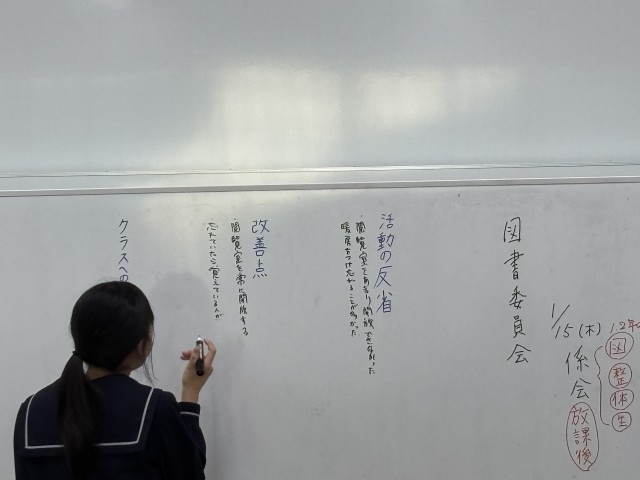 1.2年
図
整
体
生
1/15(木)係会 放課後
図書委員会
活動の反省
・閲覧室をあまり開放できなかった
暖房をつけ忘れることが多かった
改善点
・閲覧室を常に開放する
忘れていたら覚えている人が
クラスへの